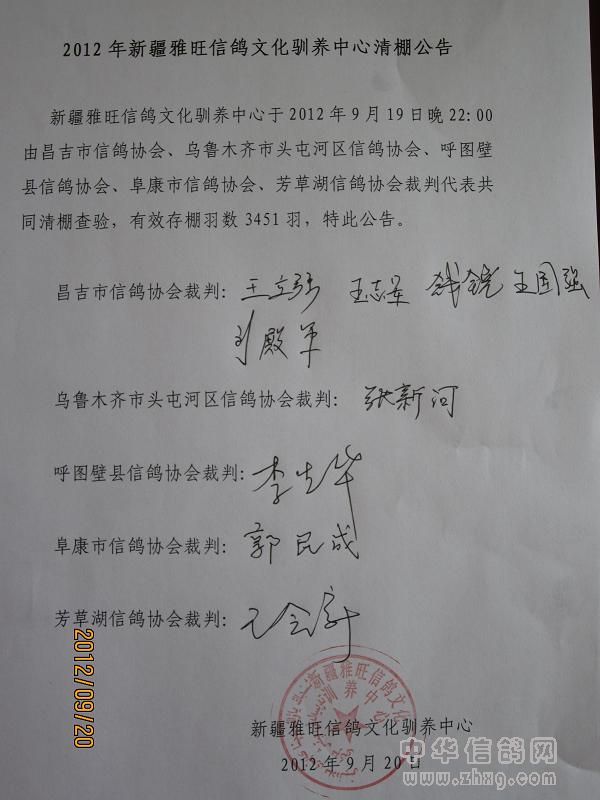 2012年新疆雅旺信鸽文化驯养中心清棚公告
新疆雅旺信鸽文化驯养中心于2012年9月19日晚22:00
由昌吉市信鸽协会、乌鲁木齐市头屯河区信鸽协会、呼图壁
县信鸽协会、阜康市信鸽协会、芳草湖信鸽协会裁判代表共
同清棚查验，有效存棚羽数3451羽，特此公告。
昌吉市信鸽协会裁判：王立强 王志军 钱锐 王国强
刘殿军
乌鲁木齐市头屯河区信鸽协会裁判：张新河
呼图壁县信鸽协会裁判：李生华
阜康市信鸽协会裁判：郭民成
芳草湖信鸽协会裁判：
2012/09/20
新疆雅旺信鸽文化
驯养中心
新疆雅旺信鸽文化驯养中心
2012年9月20日
中华信鸽网
www.zhxg.com